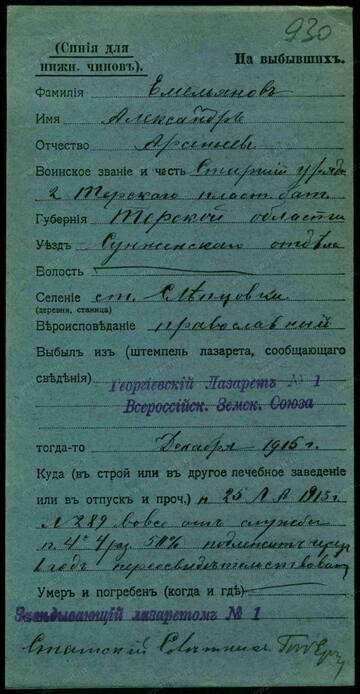 930
(Синія для
нижн. чиновъ).
На выбывшихъ.
Фамилія Емельяновъ
Имя Александръ
Отчество Арсеньев
Воинское званіе и часть Старшій уряд.
2 Терскаго пласт. бат.
Губернія Терской области
Уѣздъ Сунженскаго отдѣла
Волость
Селеніе ст. Слѣпцовки
(деревня, станица)
Вѣроисповѣданіе православный
Выбылъ изъ (штемпель лазарета, сообщающаго
свѣдѣнія)
Георгіевскій Лазаретъ № 1
Всероссійск. Земск. Союза
тогда-то Декабря 1915 г.
Куда (въ строй или въ другое лечебное заведеніе
или въ отпускъ и проч.) 25 1915 г.
№ 289 вовсе от службы
п. 4 4 раз. 50% подлежитъ через
1 годъ пересвидѣтельствован
Умеръ и погребен (когда и гдѣ)
Завѣдывающій лазаретомъ № 1
Статскій Совѣтникъ